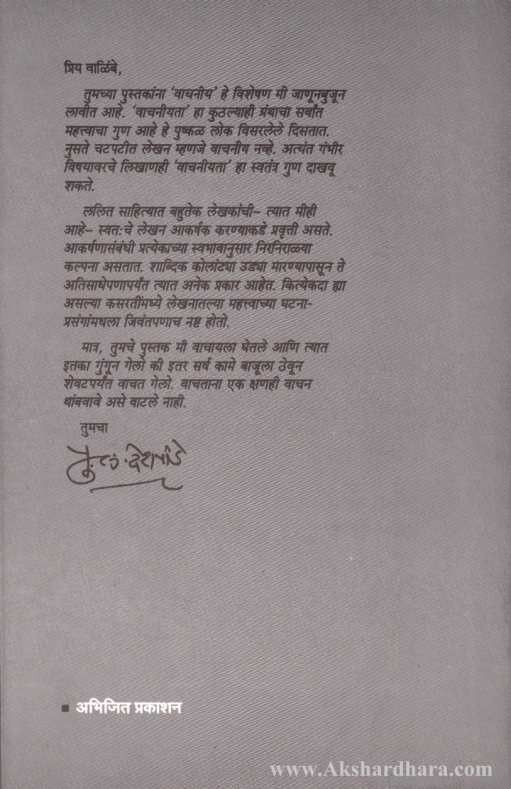 प्रिय वाळिंबे,
तुमच्या पुस्तकांना ‘वाचनीय’ हे विशेषण मी जाणूनबुजून
लावीत आहे. ‘वाचनीयता’ हा कुठल्याही ग्रंथाचा सर्वांत
महत्त्वाचा गुण आहे हे पुष्कळ लोक विसरलेले दिसतात.
नुसते चटपटीत लेखन म्हणजे वाचनीय नव्हे. अत्यंत गंभीर
विषयावरचे लिखाणही ‘वाचनीयता’ हा स्वतंत्र गुण दाखवू
शकते.
ललित साहित्यात बहुतेक लेखकांची– त्यात मीही
आहे– स्वत:चे लेखन आकर्षक करण्याकडे प्रवृत्ती असते.
आकर्षणासंबंधी प्रत्येकाच्या स्वभावानुसार निरनिराळ्या
कल्पना असतात. शाब्दिक कोलांट्या उड्या मारण्यापासून ते
अतिसाधेपणापर्यंत त्यात अनेक प्रकार आहेत. कित्येकदा ह्या
असल्या कसरतींमध्ये लेखनातल्या महत्त्वाच्या घटना-
प्रसंगांमधला जिवंतपणाच नष्ट होतो.
मात्र, तुमचे पुस्तक मी वाचायला घेतले आणि त्यात
इतका गुंगून गेलो की इतर सर्व कामे बाजूला ठेवून
शेवटपर्यंत वाचत गेलो. वाचताना एक क्षणही वाचन
थांबवावे असे वाटले नाही.
तुमचा
पु. ल. देशपांडे
अभिजित प्रकाशन
www.Akshardhara.com